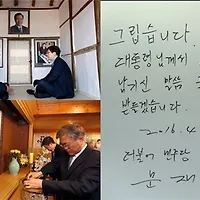 그립습니다.
대통령님께서
남기신 말씀
받들겠습니다.
2016. 4
더불어 민주당
문 재